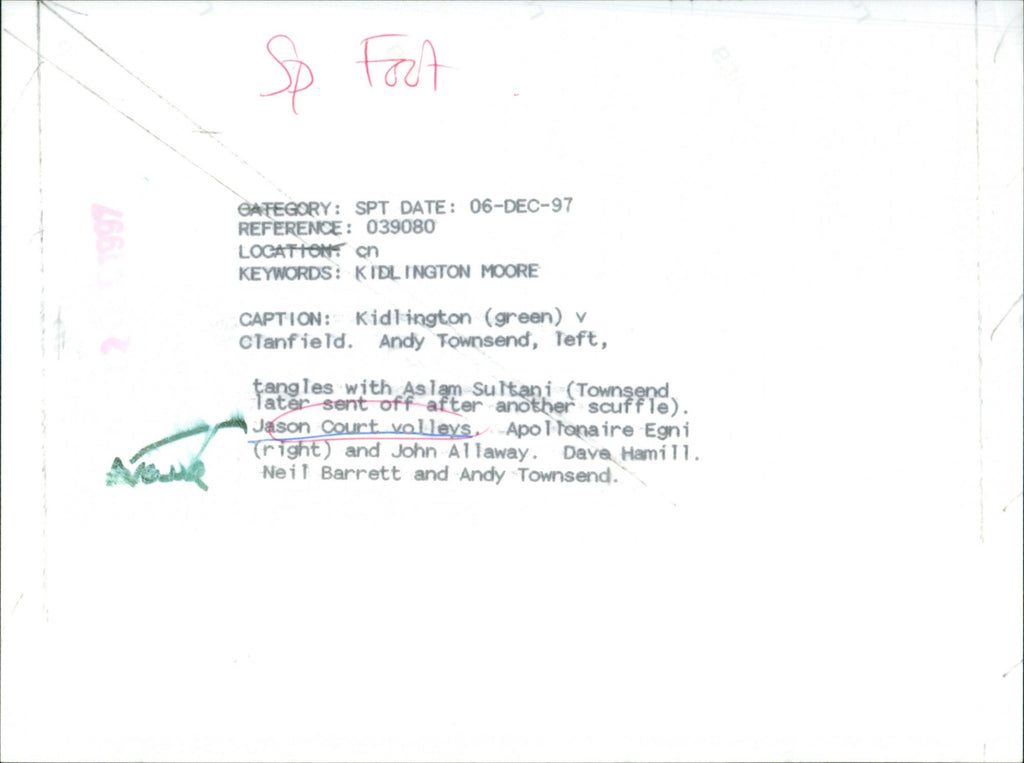 Sp Foot
CATEGORY: SPT DATE: 06-DEC-97
REFERENCE: 039080
LOCATION: cn
KEYWORDS: KIDLINGTON MOORE
CAPTION: Kidlington (green) v
Clanfield. Andy Townsend, left,
tangles with Aslam Sultani (Townsend
later sent off after another scuffle).
Jason Court volleys. Apollonaire Egni
(right) and John Allaway. Dave Hamill.
Neil Barrett and Andy Townsend.